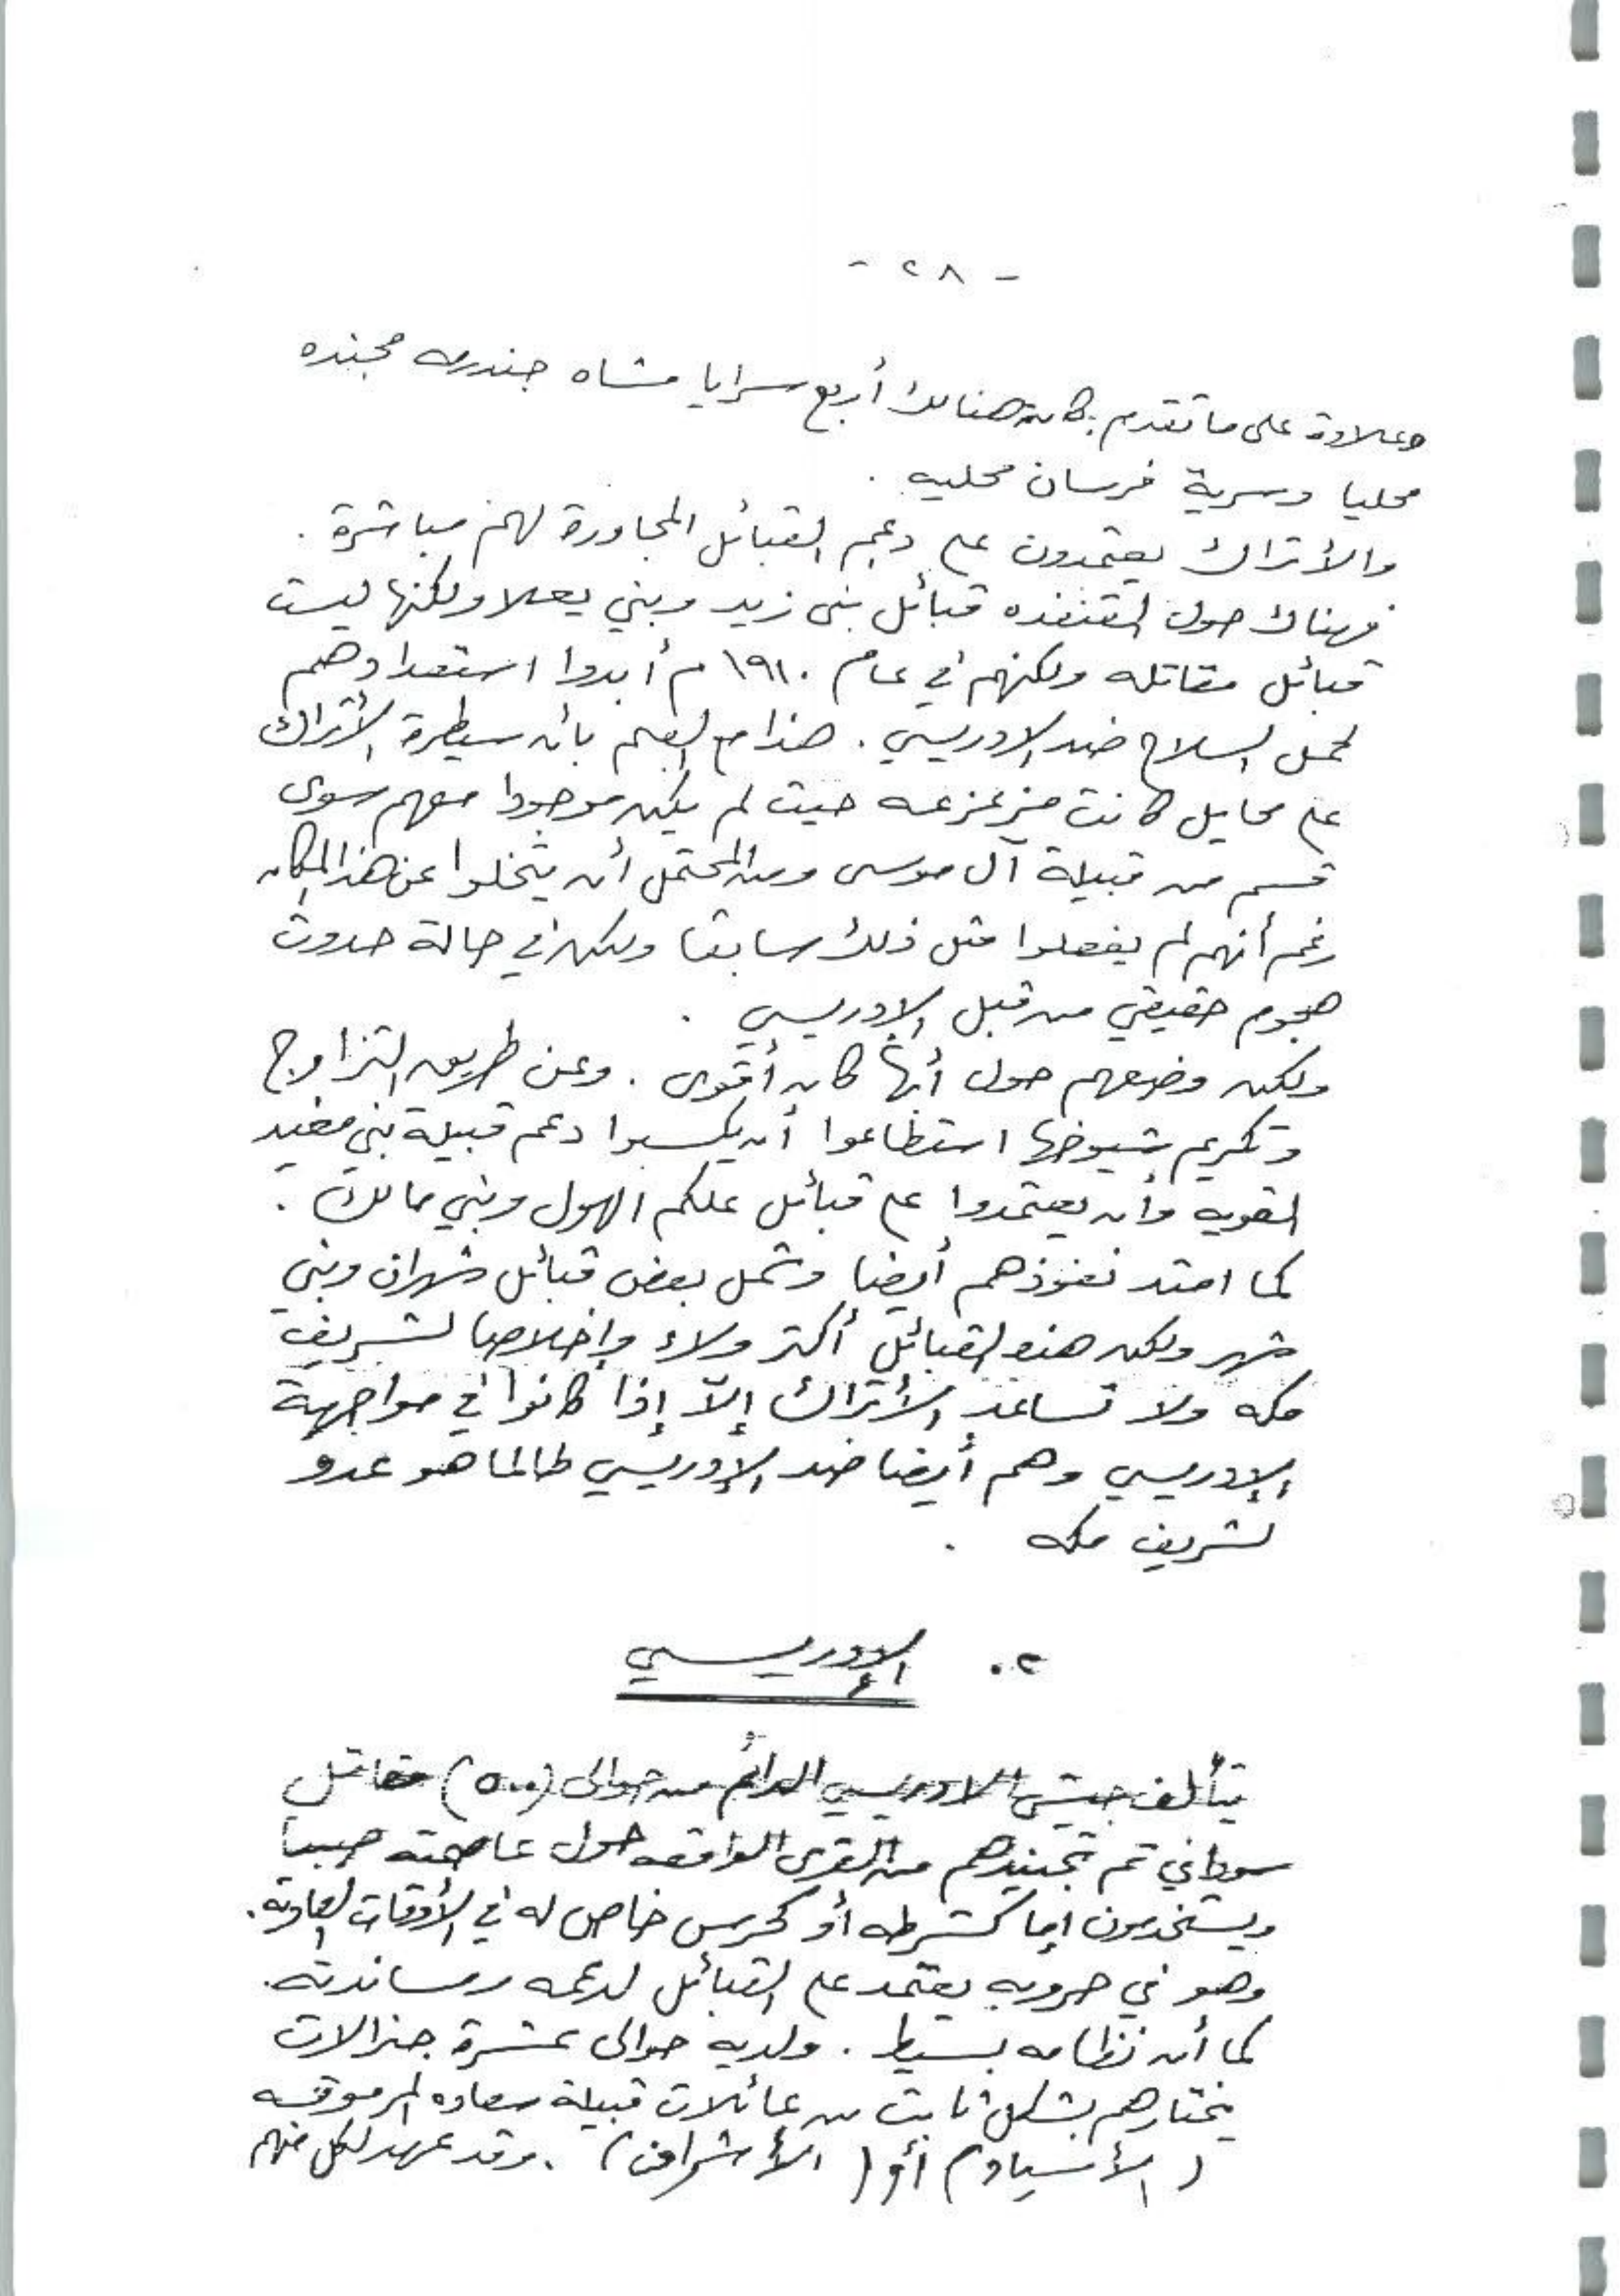 - ٢٨ -
وعلاوة على ما تقدم : كان هنالك أربع سرايا مشاه جندرمه مجنده
محليا وسرية فرسان محليه .
والأتراك يعتمدون على دعم القبائل المجاورة لهم مباشرة .
فهناك حول القنفذه قبائل بني زيد وبني يعلا ولكنها ليست
قبائل مقاتله ولكنهم في عام ١٩١٠ م أبدوا استعدادهم
لحمل السلاح ضد الادريسي . هذا مع العلم بأن سيطرة الأتراك
على محايل كانت مزعزعه حيث لم يكن موجودا معهم سوى
قسم من قبيلة آل موسى ومن المحتمل أن يتخلوا عن هذا المكان
رغم أنهم لم يفعلوا مثل ذلك سابقا ولكن في حالة حدوث
هجوم حقيقي من قبل الإدريسي .
ولكن وضعهم حول أبها كان أقوى . وعن طريق التزاوج
وتكريم شيوخها استطاعوا أن يكسبوا دعم قبيلة بني مغيد
القويه وأن يعتمدوا على قبائل علكم الهول وبني مالك .
كما امتد نفوذهم أيضا وشمل بعض قبائل شهران وبني
شهر ولكن هذه القبائل أكثر ولاء وإخلاصا لشريف
مكه ولا تساعد الأتراك إلاّ إذا كانوا في مواجهة
الإدريسي وهم أيضا ضد الإدريسي طالما هو عدو
لشريف مكه .
٢. الإدريسي
يتألف جيش الادريسي الدائم من حوالى (٥٠٠) مقاتل
سوداني تم تجنيدهم من القرى الواقعه حول عاصمته صبيا
ويستخدمون إما كشرطه أو كحرس خاص له في الأوقات العاديه .
وهو في حروبه يعتمد على القبائل لدعمه ومساندته .
كما أن نظامه بسيط . ولديه حوالى عشرة جنرالات
يختارهم بشكل ثابت من عائلات قبيلة سعاده المرموقه
( الأسياد ) أو ( الأشراف ) . وقد عهد لكل منهم